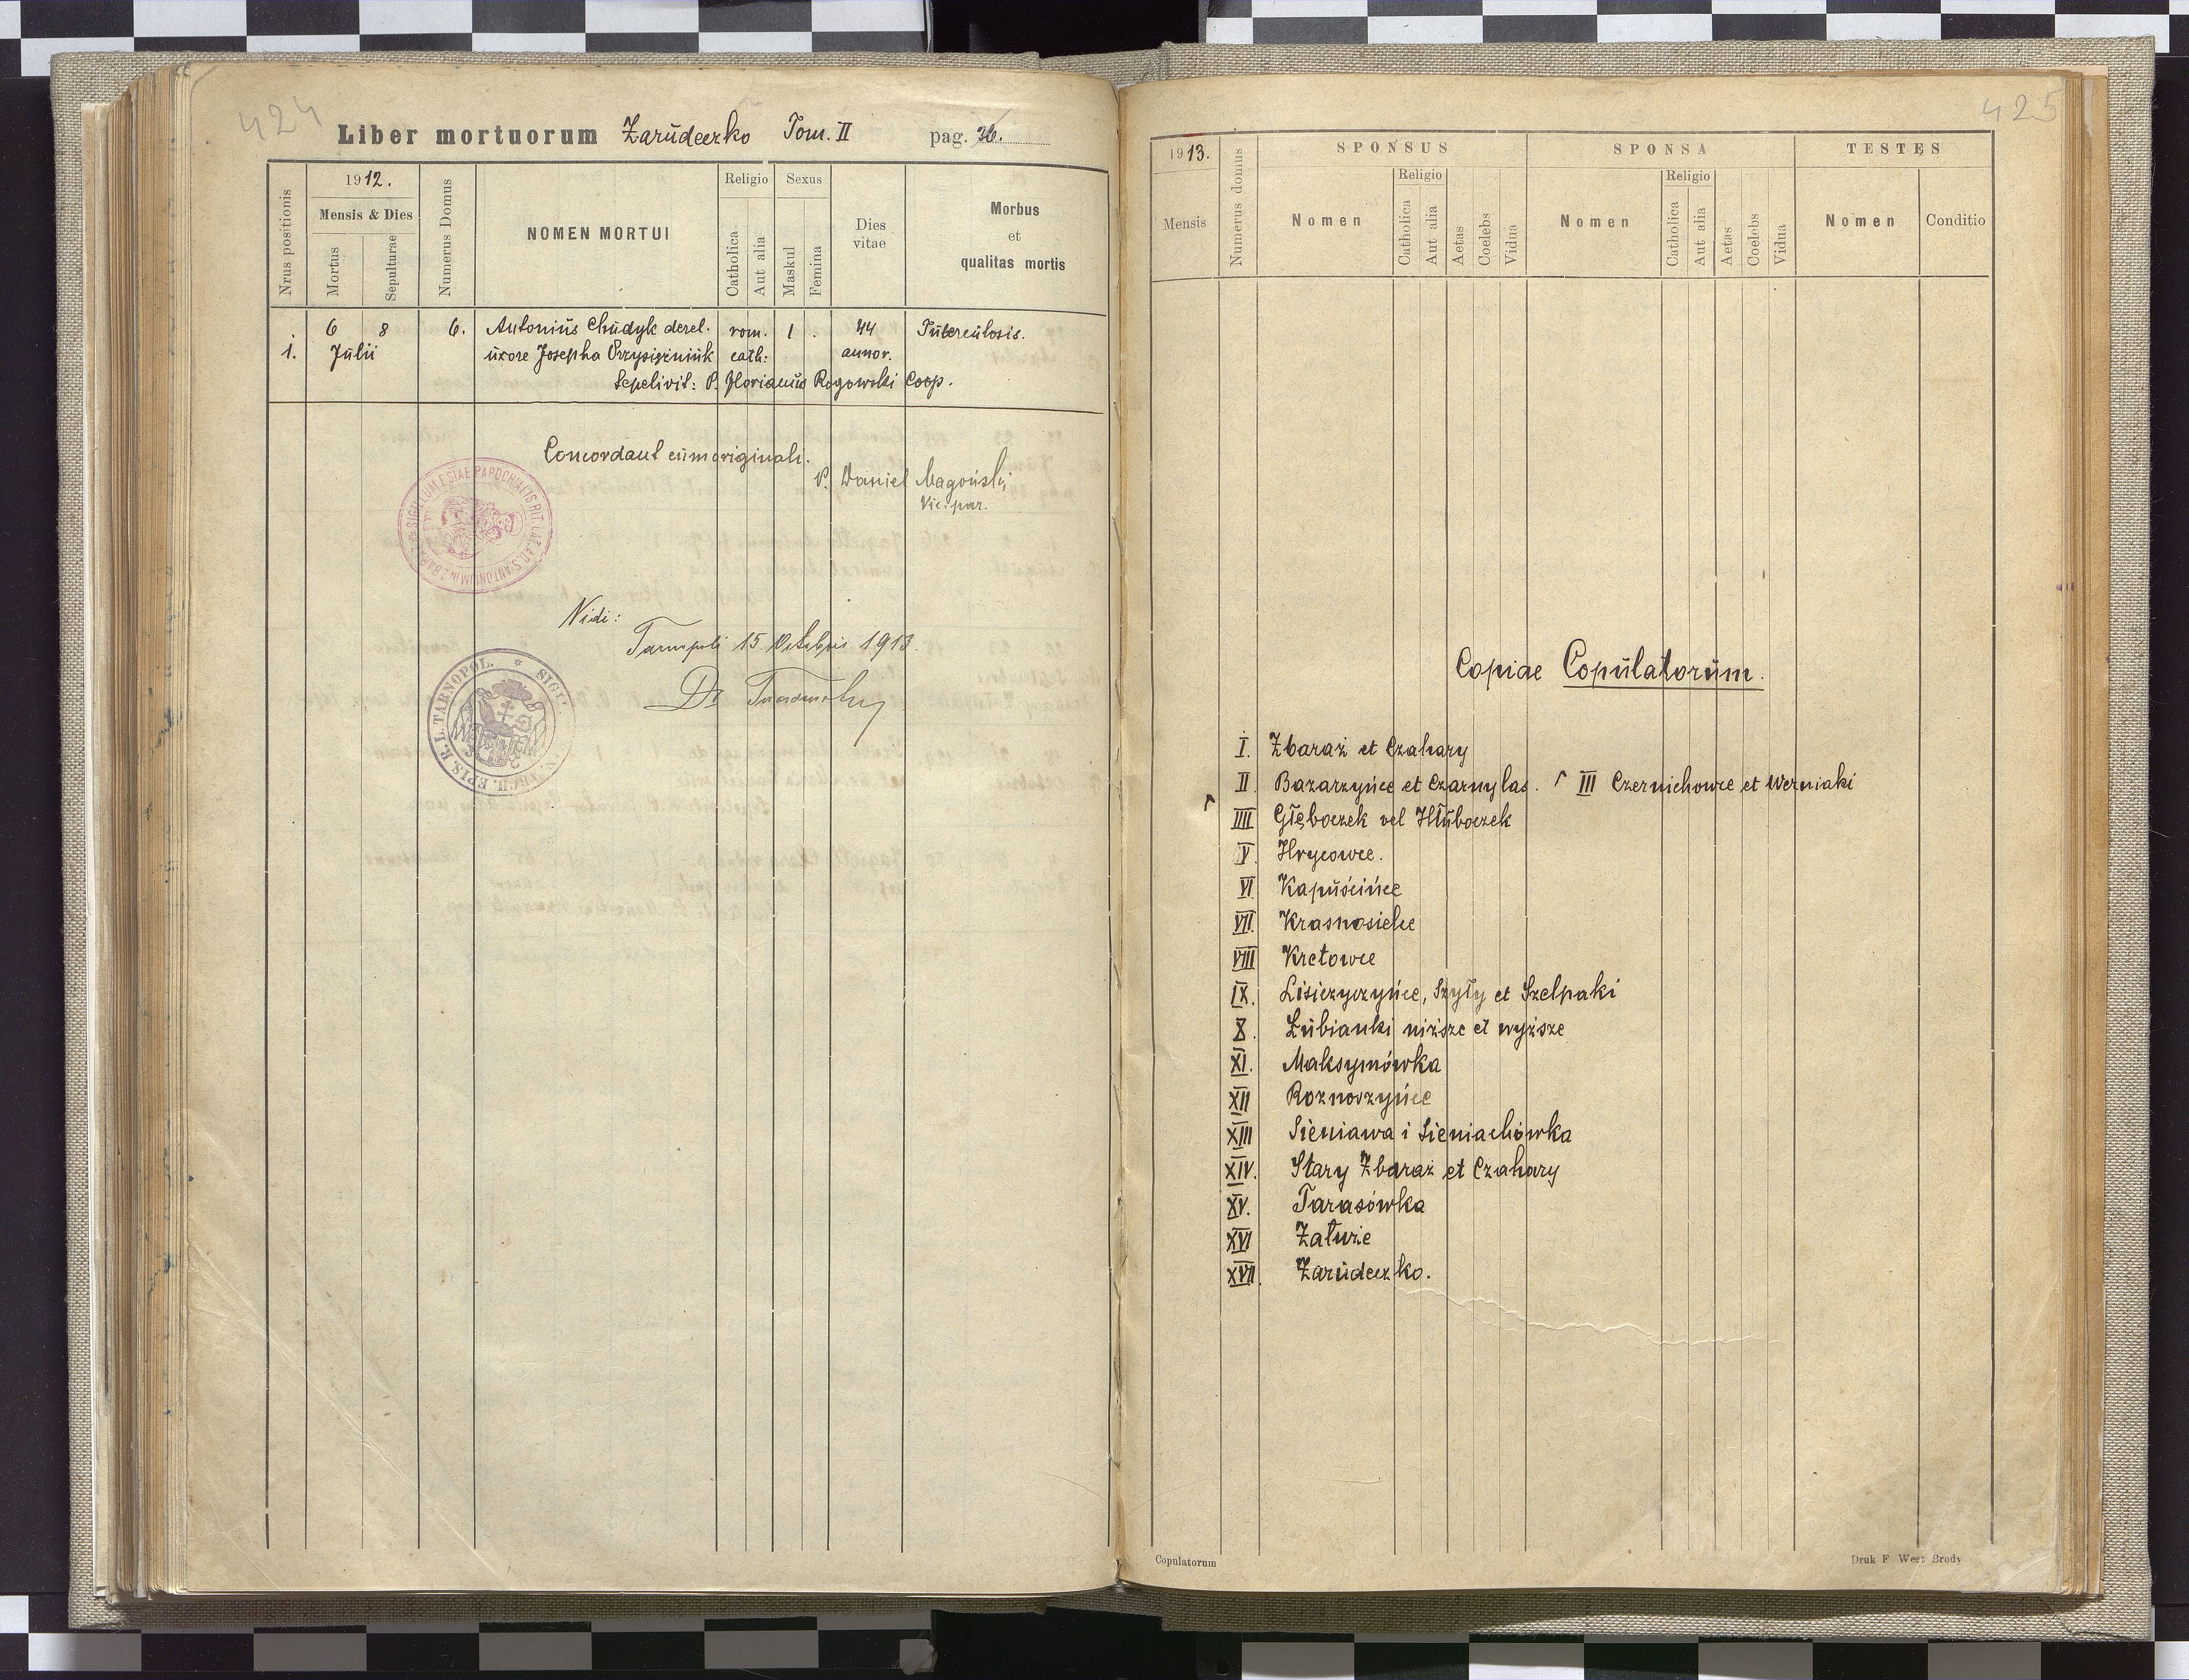 424
Liber mortuorum Zarudeczko Tom. II pag. 36.
Nrus positionis
1912.
Mensis & Dies
Mortus
Sepulturae
Numerus Domus
NOMEN MORTUI
Religio
Catholica
Aut alia
Sexus
Maskul
Femina
Dies vitae
Morbus
et
qualitas mortis
6 8 6. Antonius Chudyk derel. rom. 1 . 44 Tuberculosis.
1. Julii uxore Josepha cath: annor.
Sepelivit: P. Florianus Rogowski Coop.
Concordant cum originali.
P. Daniel Magoński
Vic. par.
Vidi:
Tarnopoli 15. Octobris 1913.
Dr
425
1913.
Mensis
Numerus domus
SPONSUS
Nomen
Religio
Catholica
Aut alia
Aetas
Coelebs
Vidua
SPONSA
Nomen
Religio
Catholica
Aut alia
Aetas
Coelebs
Vidua
TESTES
Nomen
Conditio
Copiae Copulatorum.
I. Zbaraż et Czahary
II. Bazarzyńce et Czarnylas. III Czernichowce et Werniaki
IIII Głęboczek vel Hłuboczek
V. Hrycowce.
VI Kapuścińce
VII. Krasnosielce
VIII Kretowce
IX. Lisiczyczyńce, Szyły et Szelpaki
X. Łubianki niższe et wyższe
XI. Maksymówka
XII Roznoszyńce
XIII Sieniawa i Sieniachówka
XIV. Stary Zbaraż et Czahary
XV. Tarasówka
XVI Załuże
XVII. Zarudeczko.
Copulatorum
Druk F West Brody